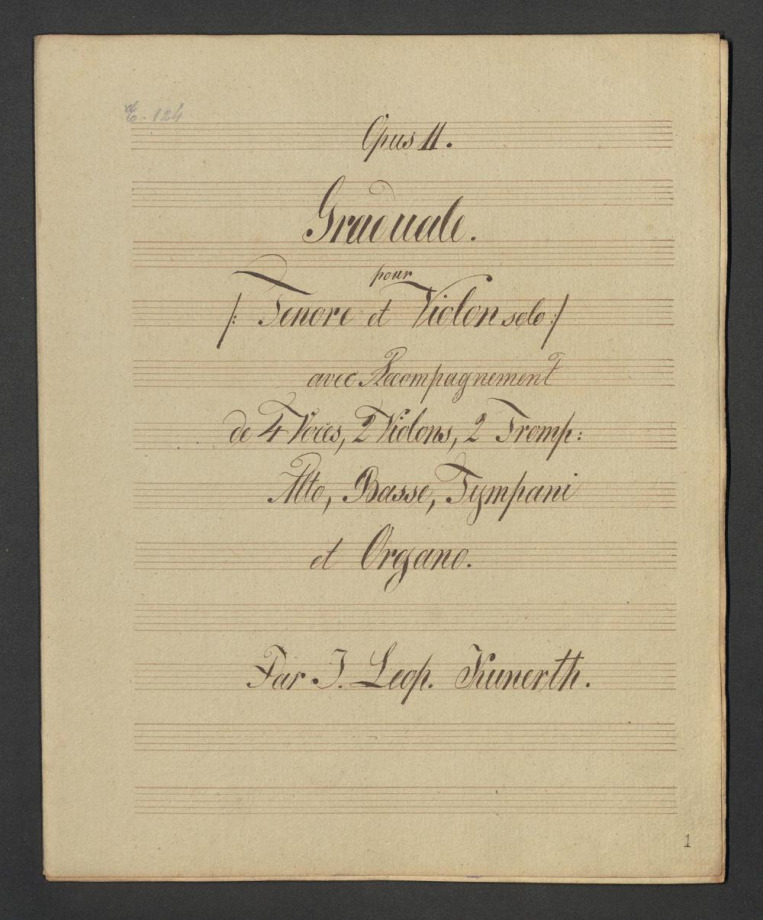 124
Opus 11.
Graduale.
pour
/: Tenore et Violon solo :/
avec Accompagnement
de 4 Voces, 2 Violons, 2 Tromp:
Alto, Basse, Tympani
et Organo.
Par J. Leop. Kunerth.
1